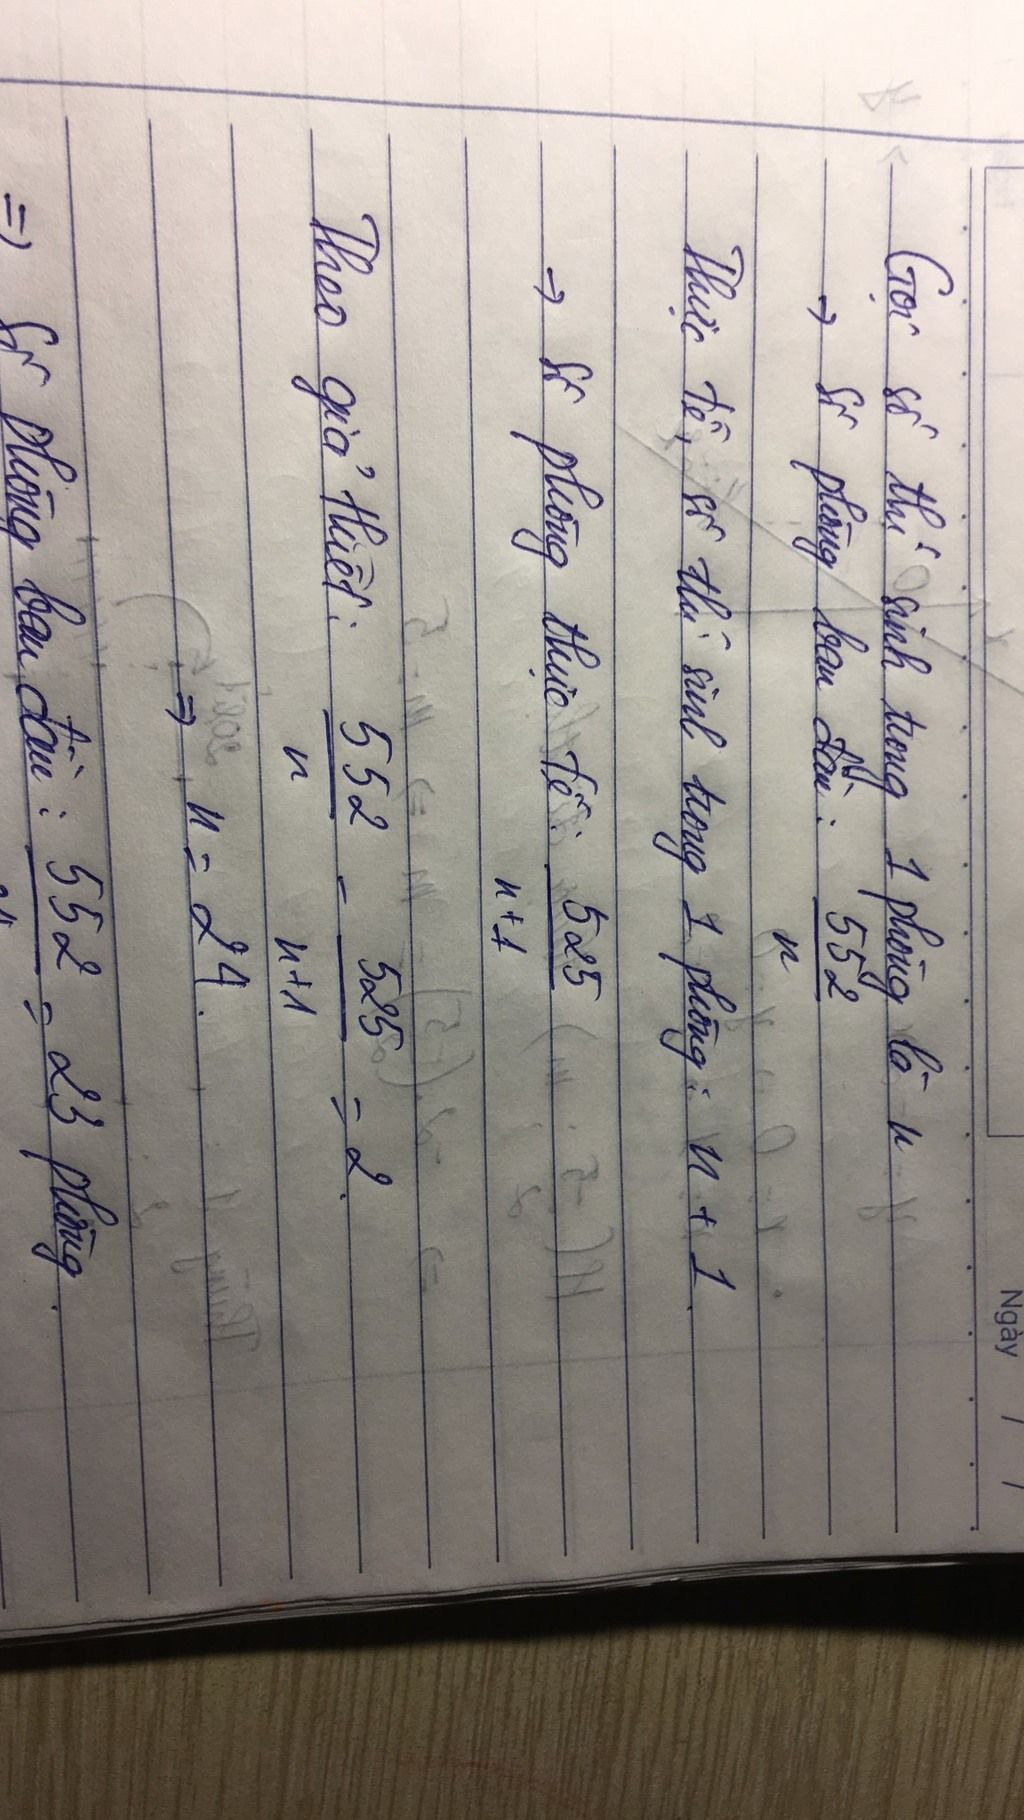 Ngày / /
Gọi số thí sinh trong 1 phòng là n
→ Số phòng ban đầu : 552/n
Thực tế, số thí sinh trong 1 phòng: n + 1
→ Số phòng thực tế: 525/n+1
Theo giả thiết: 552/n - 525/n+1 = 2.
⇒ n = 24.
⇒ Số phòng ban đầu : 552/24 = 23 phòng.